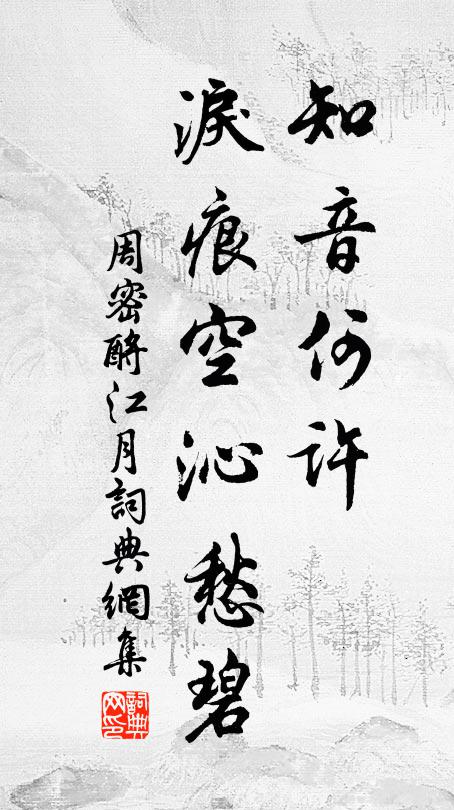 知音何許
淚痕空沁愁碧
周密酹江月詞典網集
詞典網印